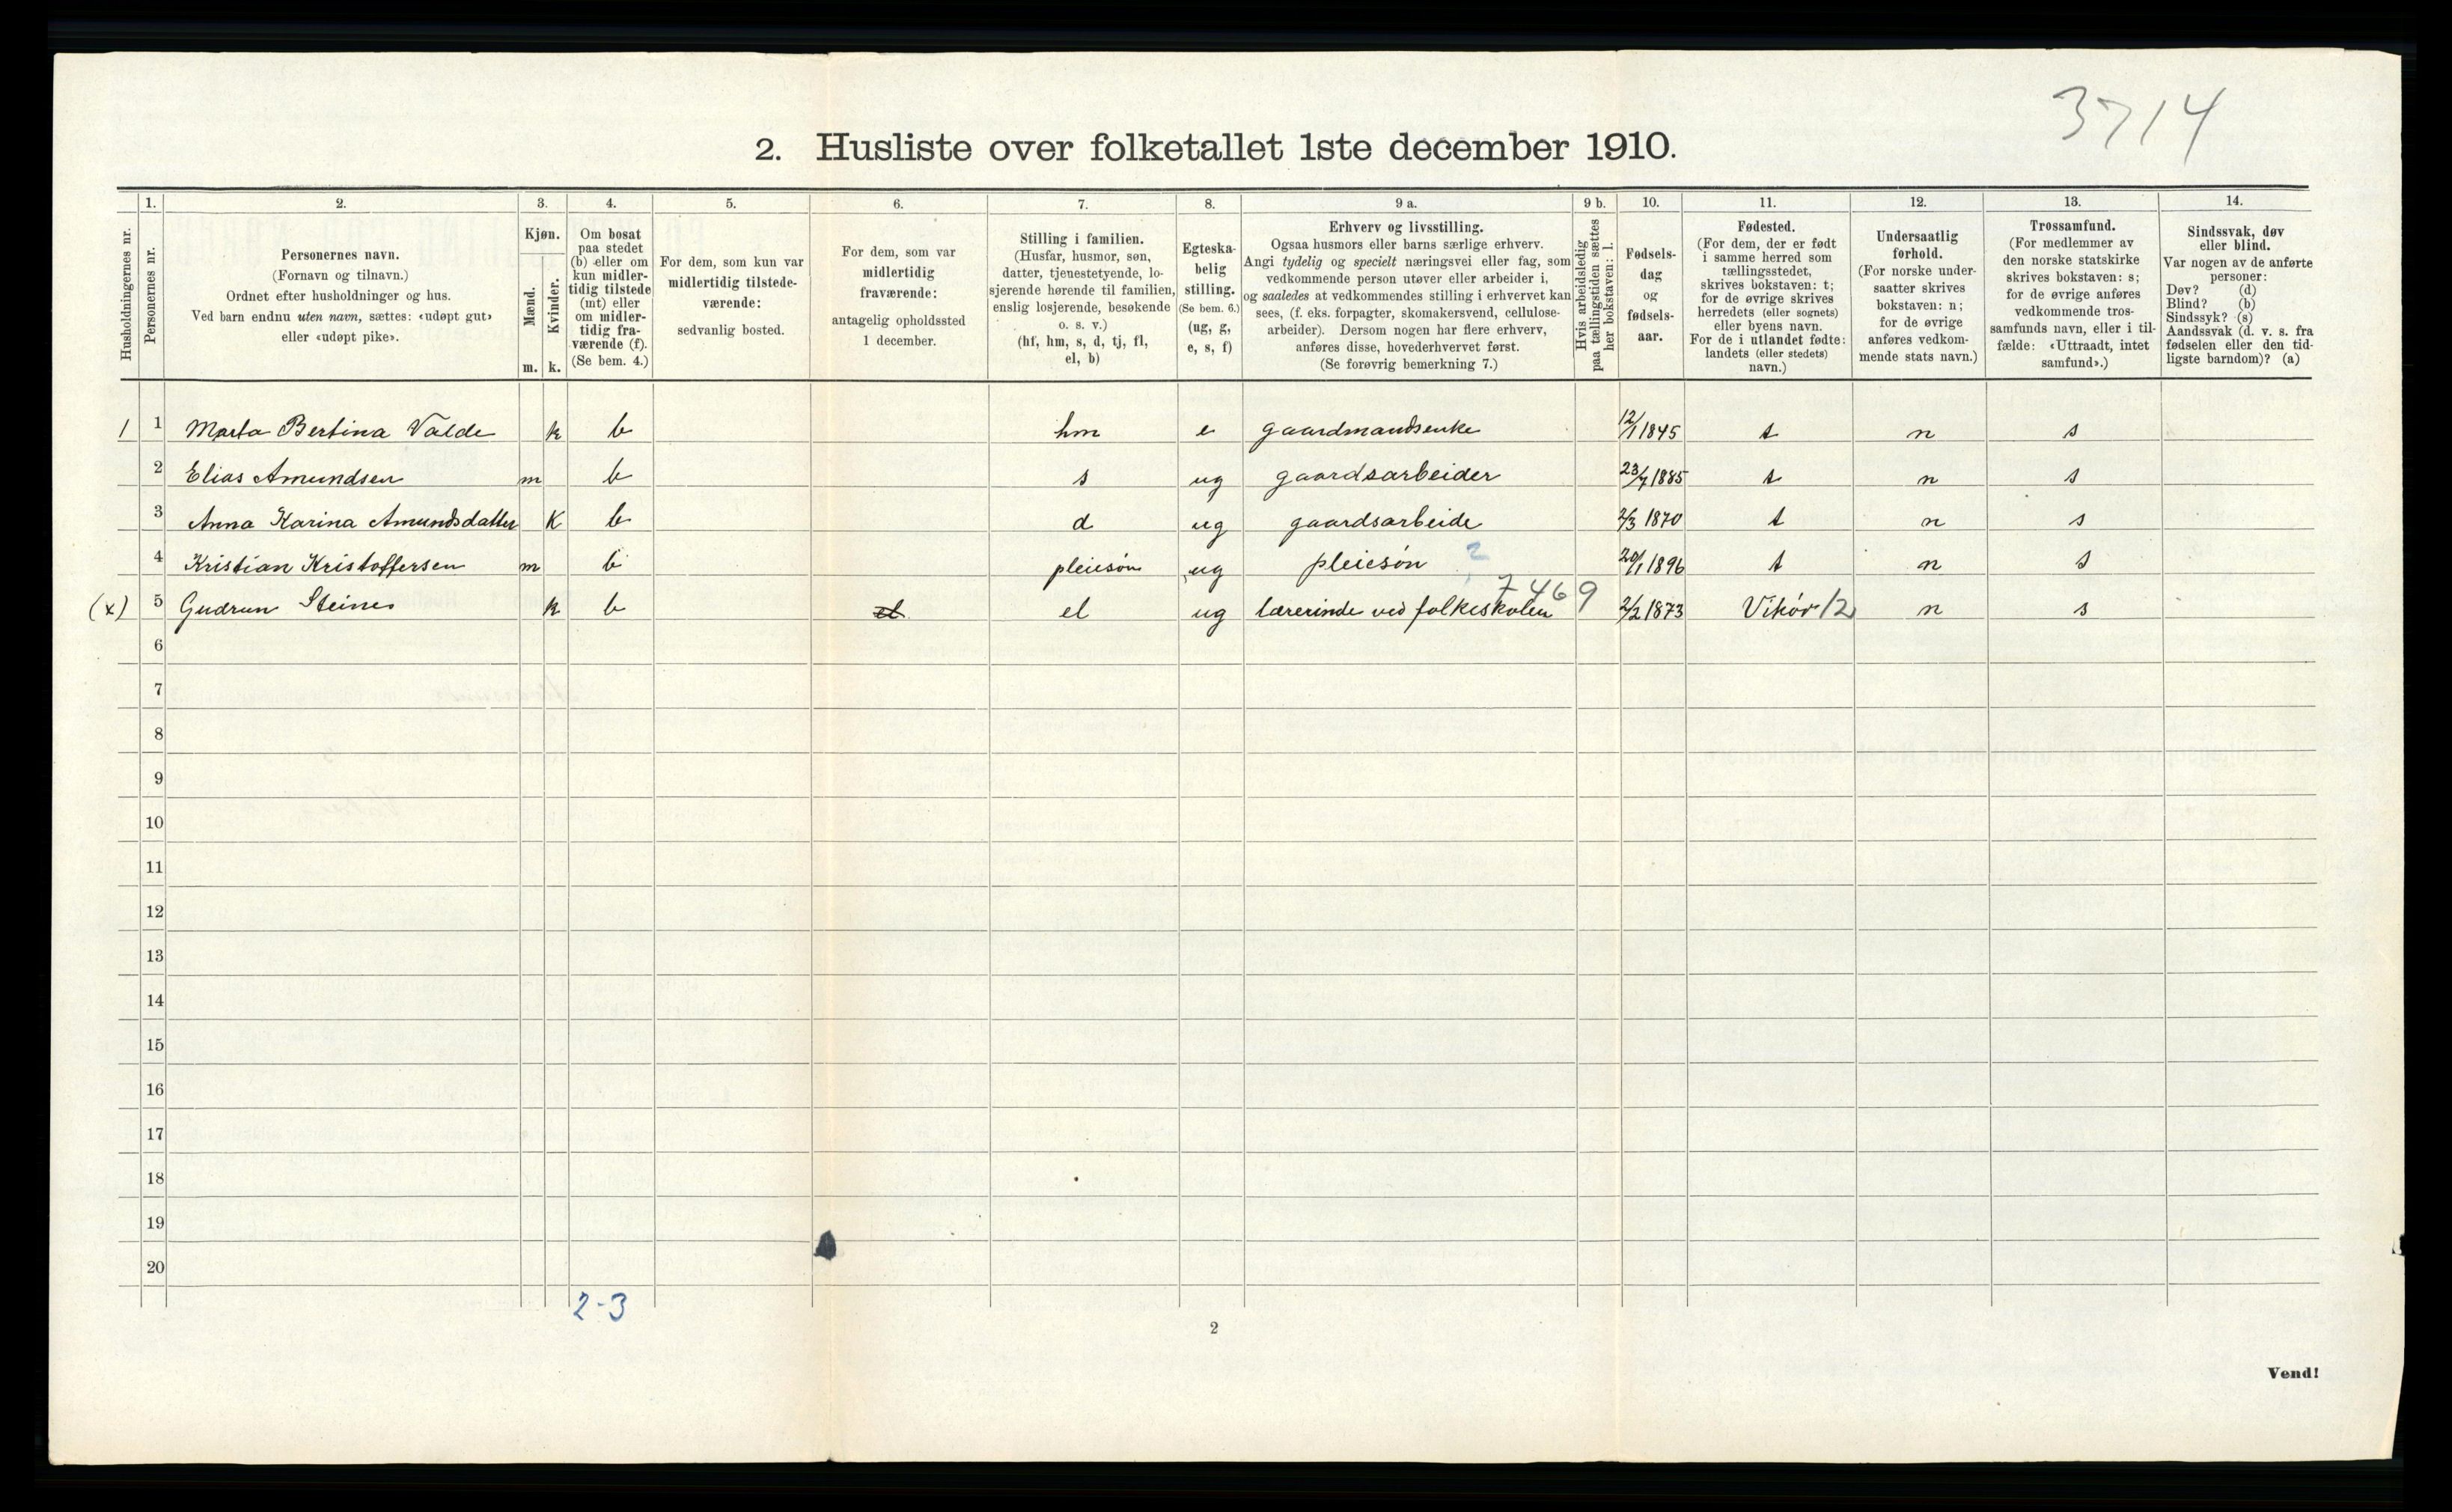 3714
2. Husliste over folketallet 1ste december 1910.
Husholdningernes nr.
1.
Personernes nr.
2.
Personernes navn.
(Fornavn og tilnavn.)
Ordnet efter husholdninger og hus.
Ved barn endnu uten navn, sættes: «udøpt gut»
eller «udøpt pike».
3.
Kjøn.
Mænd.
Kvinder.
m. k.
4.
Om bosat
paa stedet
(b) eller om
kun midler-
tidig tilstede
(mt) eller
om midler-
tidig fra-
værende (f).
(Se bem. 4.)
5.
For dem, som kun var
midlertidig tilstede-
værende:
sedvanlig bosted.
6.
For dem, som var
midlertidig
fraværende:
antagelig opholdssted
1 december.
7.
Stilling i familien.
(Husfar, husmor, søn,
datter, tjenestetyende, lo-
sjerende hørende til familien,
enslig losjerende, besøkende
o. s. v.)
(hf, hm, s, d, tj, fl,
el, b)
8.
Egteska-
belig
stilling.
(Se bem. 6.)
(ug, g,
e, s, f)
9 a.
Erhverv og livsstilling.
Ogsaa husmors eller barns særlige erhverv.
Angi tydelig og specielt næringsvei eller fag, som
vedkommende person utøver eller arbeider i,
og saaledes at vedkommendes stilling i erhvervet kan
sees, (f. eks. forpagter, skomakersvend, cellulose-
arbeider). Dersom nogen har flere erhverv,
anføres disse, hovederhvervet først.
(Se forøvrig bemerkning 7.)
9 b.
Hvis arbeidsledig
paa tællingstiden sættes
her bokstaven: l.
10.
Fødsels-
dag
og
fødsels-
aar.
11.
Fødested.
(For dem, der er født
i samme herred som
tællingsstedet,
skrives bokstaven: t;
for de øvrige skrives
herredets (eller sognets)
eller byens navn.
For de i utlandet fødte:
landets (eller stedets)
navn.)
12.
Undersaatlig
forhold.
(For norske under-
saatter skrives
bokstaven: n;
for de øvrige
anføres vedkom-
mende stats navn.)
13.
Trossamfund.
(For medlemmer av
den norske statskirke
skrives bokstaven: s;
for de øvrige anføres
vedkommende tros-
samfunds navn, eller i til-
fælde: «Uttraadt, intet
samfund».)
14.
Sindssvak, døv
eller blind.
Var nogen av de anførte
personer:
Døv? (d)
Blind? (b)
Sindssyk? (s)
Aandssvak (d. v. s. fra
fødselen eller den tid-
ligste barndom)? (a)
1 1 Marta Bertina Valde k b hm e gaardmandsenke 12/1 1845 t n s
2 Elias Amundsen m b s ug gaardsarbeider 23/7 1885 t n s
3 Anna Karina Amundsdatter K b d ug gaardsarbeide 2/3 1870 t n s
4 Kristian Kristoffersen m b pleiesøn ug pleiesøn ? 20/1 1896 t n s
7469
(x) 5 Gudrun Steines k b el el ug lærerinde ved folkeskolen 2/2 1873 Vikør 12 n s
6
7
8
9
10
11
12
13
14
15
16
17
18
19
20
2-3
2
Vend!